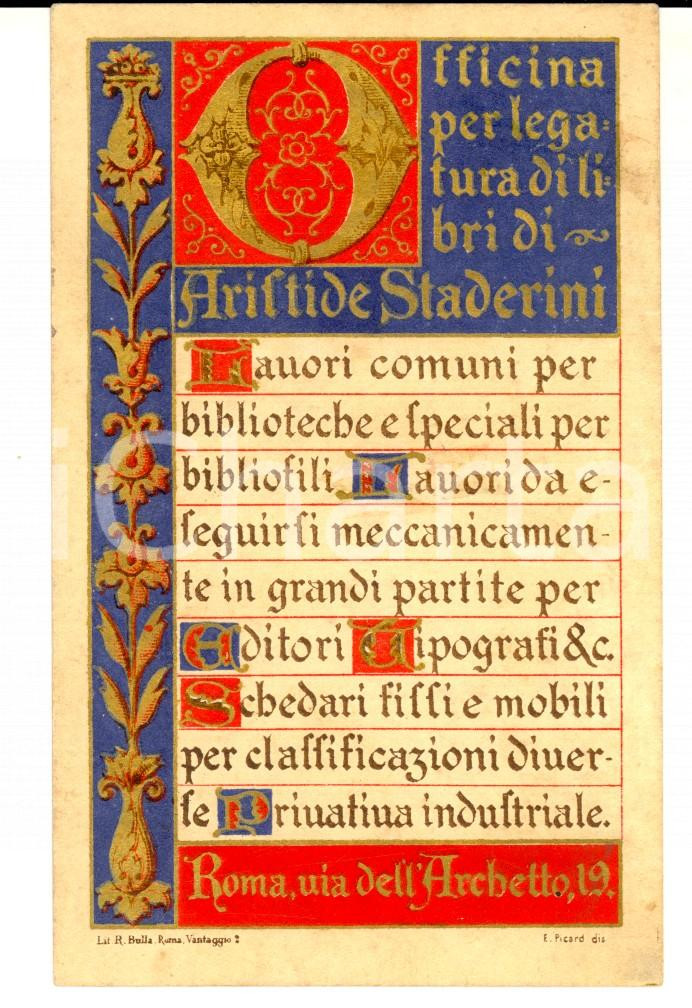 Officina
per lega=
tura di li=
bri di
Ariſtide Staderini
Lauori comuni per
biblioteche e ſpeciali per
bibliofili Lauori da e-
ſeguirſi meccanicamen-
te in grandi partite per
Editori Tipografi &c.
Schedari fiſſi e mobili
per claſſificazioni diuer-
ſe Priuatiua induſtriale.
Roma, uia dell'Archetto, 19.
Lit. R. Bulla. Roma, Vantaggio 2
E. Picard dis
iCharta